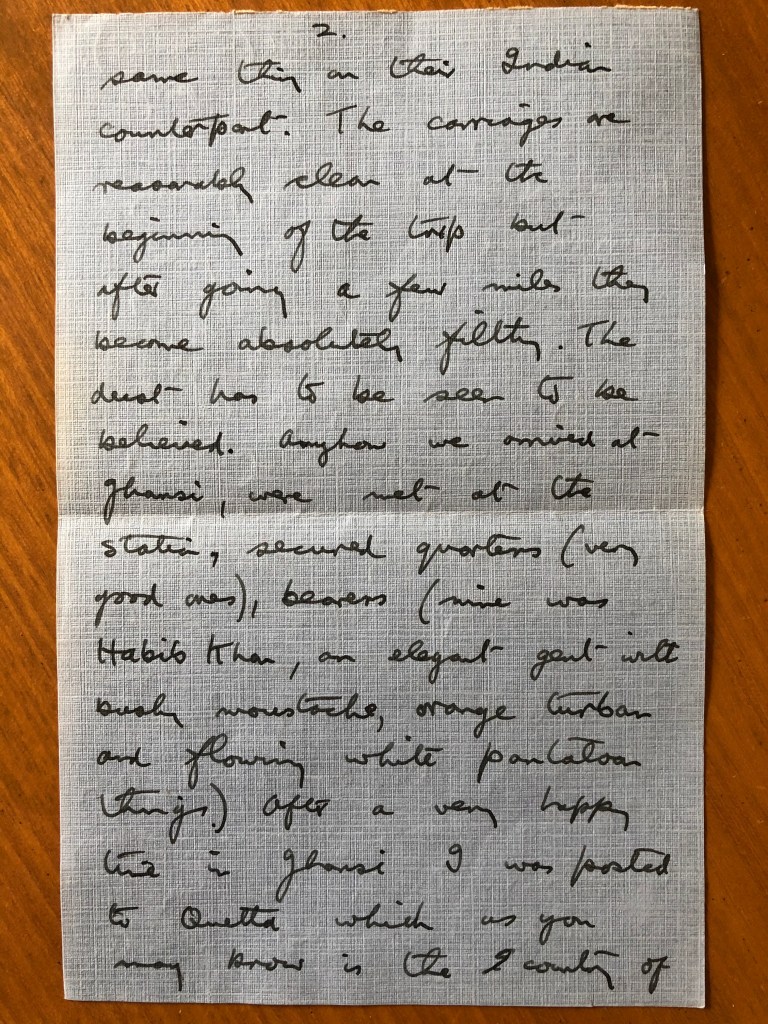 2.
same thing on their Indian
counterpart. The carriages are
reasonably clean at the
beginning of the trip but
after going a few miles they
become absolutely filthy. The
dust has to be seen to be
believed. Anyhow we arrived at
Jhansi, were met at the
station, secured quarters (very
good ones), bearers (mine was
Habib Khan, an elegant gent with
bushy moustache, orange turban
and flowing white pantaloon
things.) After a very happy
time in Jhansi I was posted
to Quetta which as you
may know is the county of